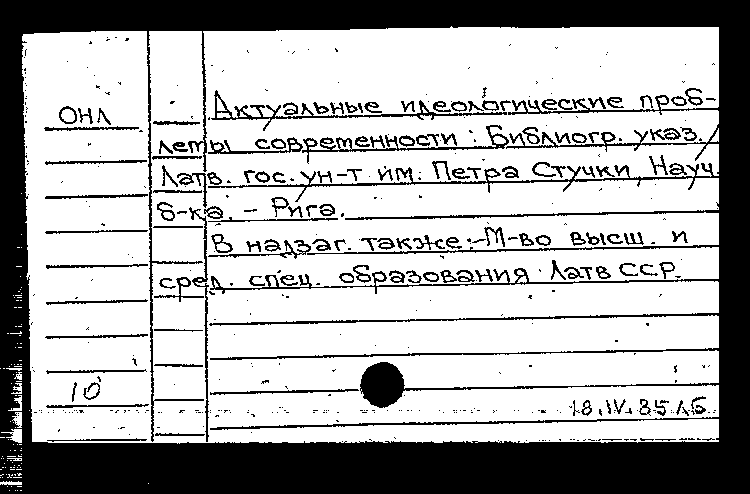 ОНЛ
Актуальные идеологические проб-
лемы современности : Библиогр. указ. /
Латв. гос. ун-т им. Петра Стучки, Науч.
б-ка. – Рига.
В надзаг. также: М-во высш. и
сред. спец. образования ЛатвССР.
10
18.IV.85 лб